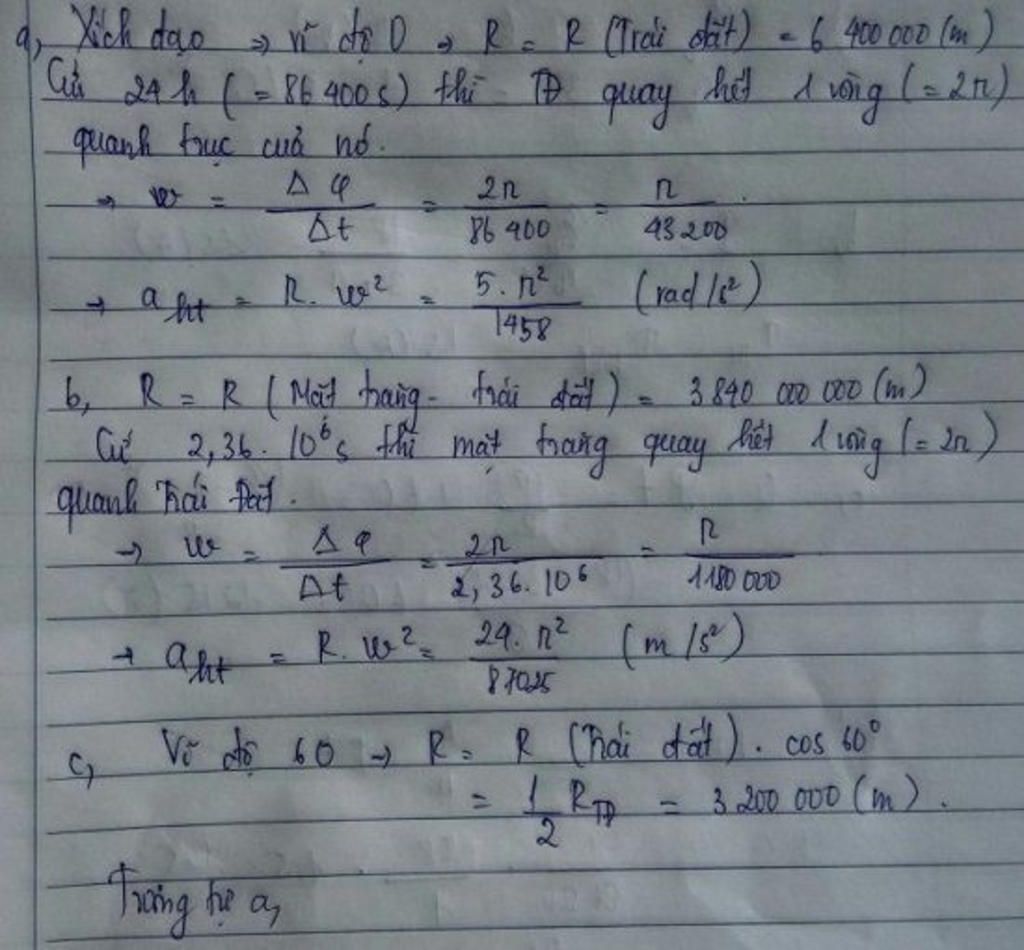 a, Xích đạo → vĩ độ 0 → R = R (Trái đất) = 6 400 000 (m)
Cứ 24h (= 86 400s) thì TĐ quay hết 1 vòng (= 2π)
quanh trục của nó.
→ w = Δφ/Δt = 2π/86 400 = π/43 200.
→ a_ht = R. w² = 5. π²/1458 (rad/s²)
b, R = R (Mặt trăng - trái đất) = 3 840 000 000 (m)
Cứ 2,36. 10⁶s thì mặt trăng quay hết 1 vòng (= 2π)
quanh Trái Đất.
→ w = Δφ/Δt = 2π/2,36. 10⁶ = π/1180 000
→ a_ht = R. w² = 24. π²/87025 (m/s²)
c, Vĩ độ 60 → R = R (Trái đất). cos 60°
= 1/2 R_TĐ = 3 200 000 (m).
Tương tự a,